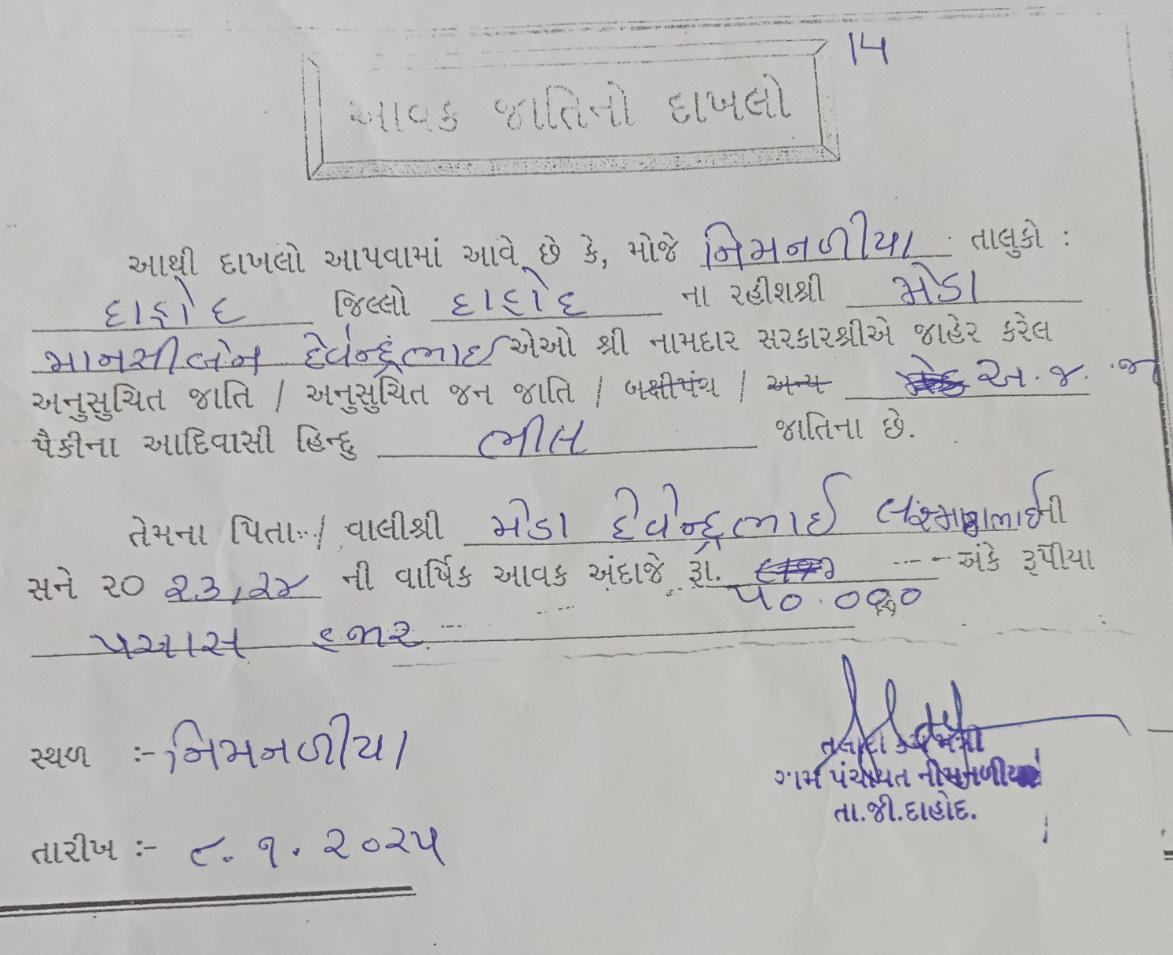 14
આવક જાતિનો દાખલો
આથી દાખલો આપવામાં આવે છે કે, મોજે નિમનળીયા તાલુકો :
દાહોદ જિલ્લો દાહોદ ના રહીશશ્રી મેડા
માનસીબેન દેવેન્દ્રભાઇ એઓ શ્રી નામદાર સરકારશ્રીએ જાહેર કરેલ
અનુસુચિત જાતિ / અનુસુચિત જન જાતિ / બક્ષીપંચ / અન્ય અ.જ.જ
પૈકીના આદિવાસી હિન્દુ ભીલ જાતિના છે.
તેમના પિતા / વાલીશ્રી મેડા દેવેન્દ્રભાઇ
સને ૨૦ ૨૩,૨૪ ની વાર્ષિક આવક અંદાજે રૂા. અંકે રૂપીયા
૫૦.૦૦૦
પચાસ હજાર
સ્થળ :- નિમનળીયા
તલાટી કમ મંત્રી
ગામ પંચાયત નીમનળીયા
તા.જી.દાહોદ.
તારીખ :- ૯.૧.૨૦૨૫